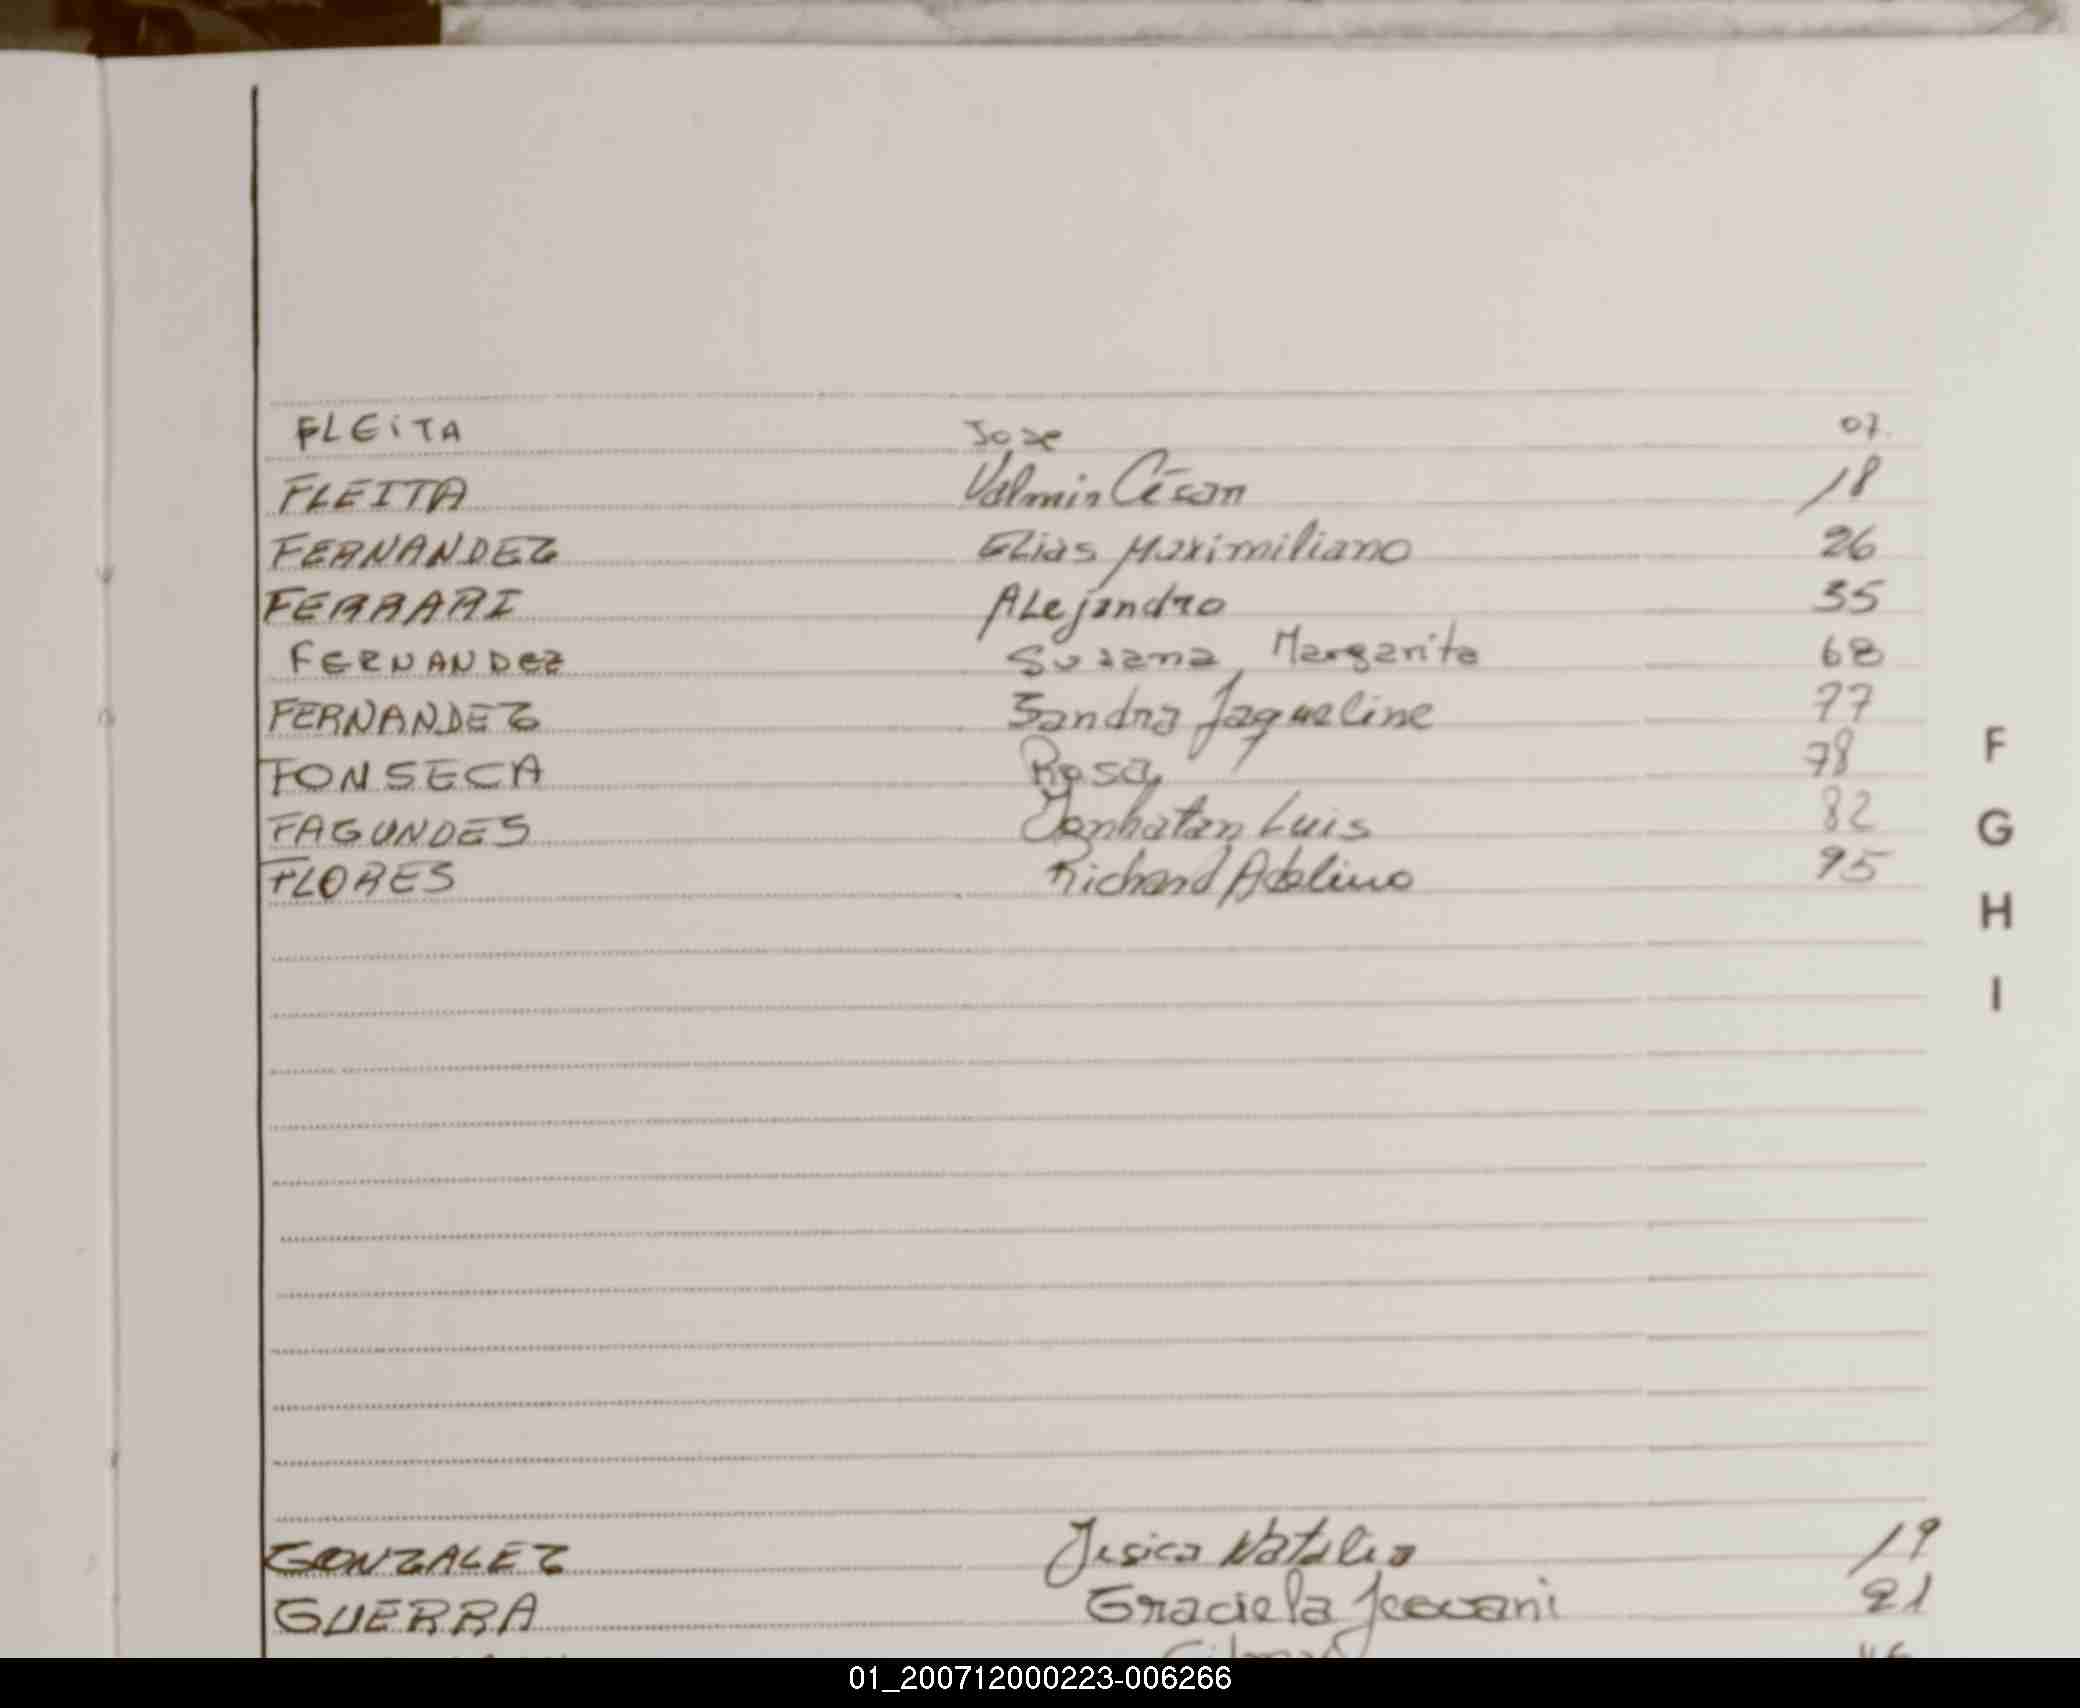 FLEiTA Jose 07.
FLEITA Valmir César 18
FERNANDEZ Elias Maximiliano 26
FERRARI ALejandro 35
FERNANDEZ Susana Margarita 68
FERNANDEZ Sandra Jaqueline 77
FONSECA Rosa 78
FAGUNDES Jonhatan Luis 82
FLORES Richard Adelino 95
F
G
H
I
GONZALEZ Jesica Natalia 19
GUERRA Graciela 21
01_200712000223-006266